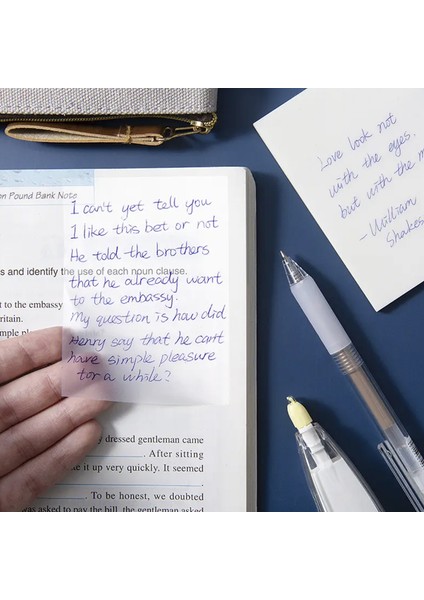 on Pound Bank Note
I can't yet tell you
I like this bet or not
He told the brothers
s and identify the use of each noun clause.
that he already want
to the embassy.
My question is how did
Henry say that he can't
have simple pleasure
for a while?
t to the embassy
ritain.
mple pl
y dressed gentleman came
. After sitting
e it up very quickly. It seemed
. To be honest, we doubted
was asked to pay the bill, the gentleman asked
Love look not
with the eyes.
but with the m
-William
Shakes